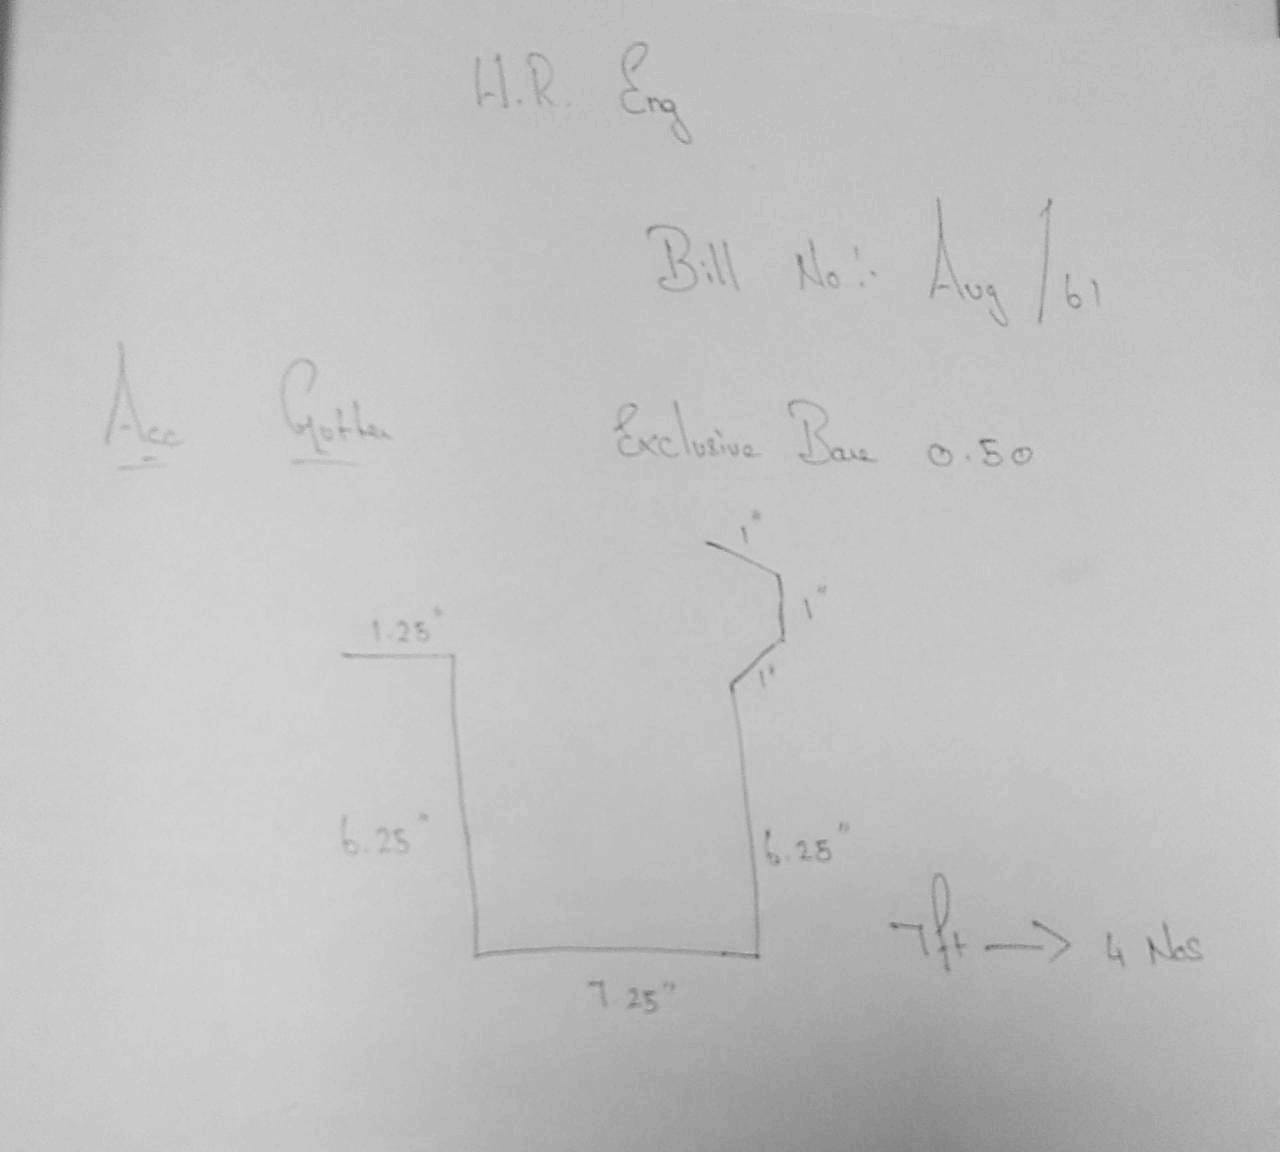 H.R. Eng
Bill No:- Aug /61
Acc Gutter Exclusive Base 0.50
1"
1"
1.25"
1"
6.25" 6.25"
7ft → 4 Nos
7.25"